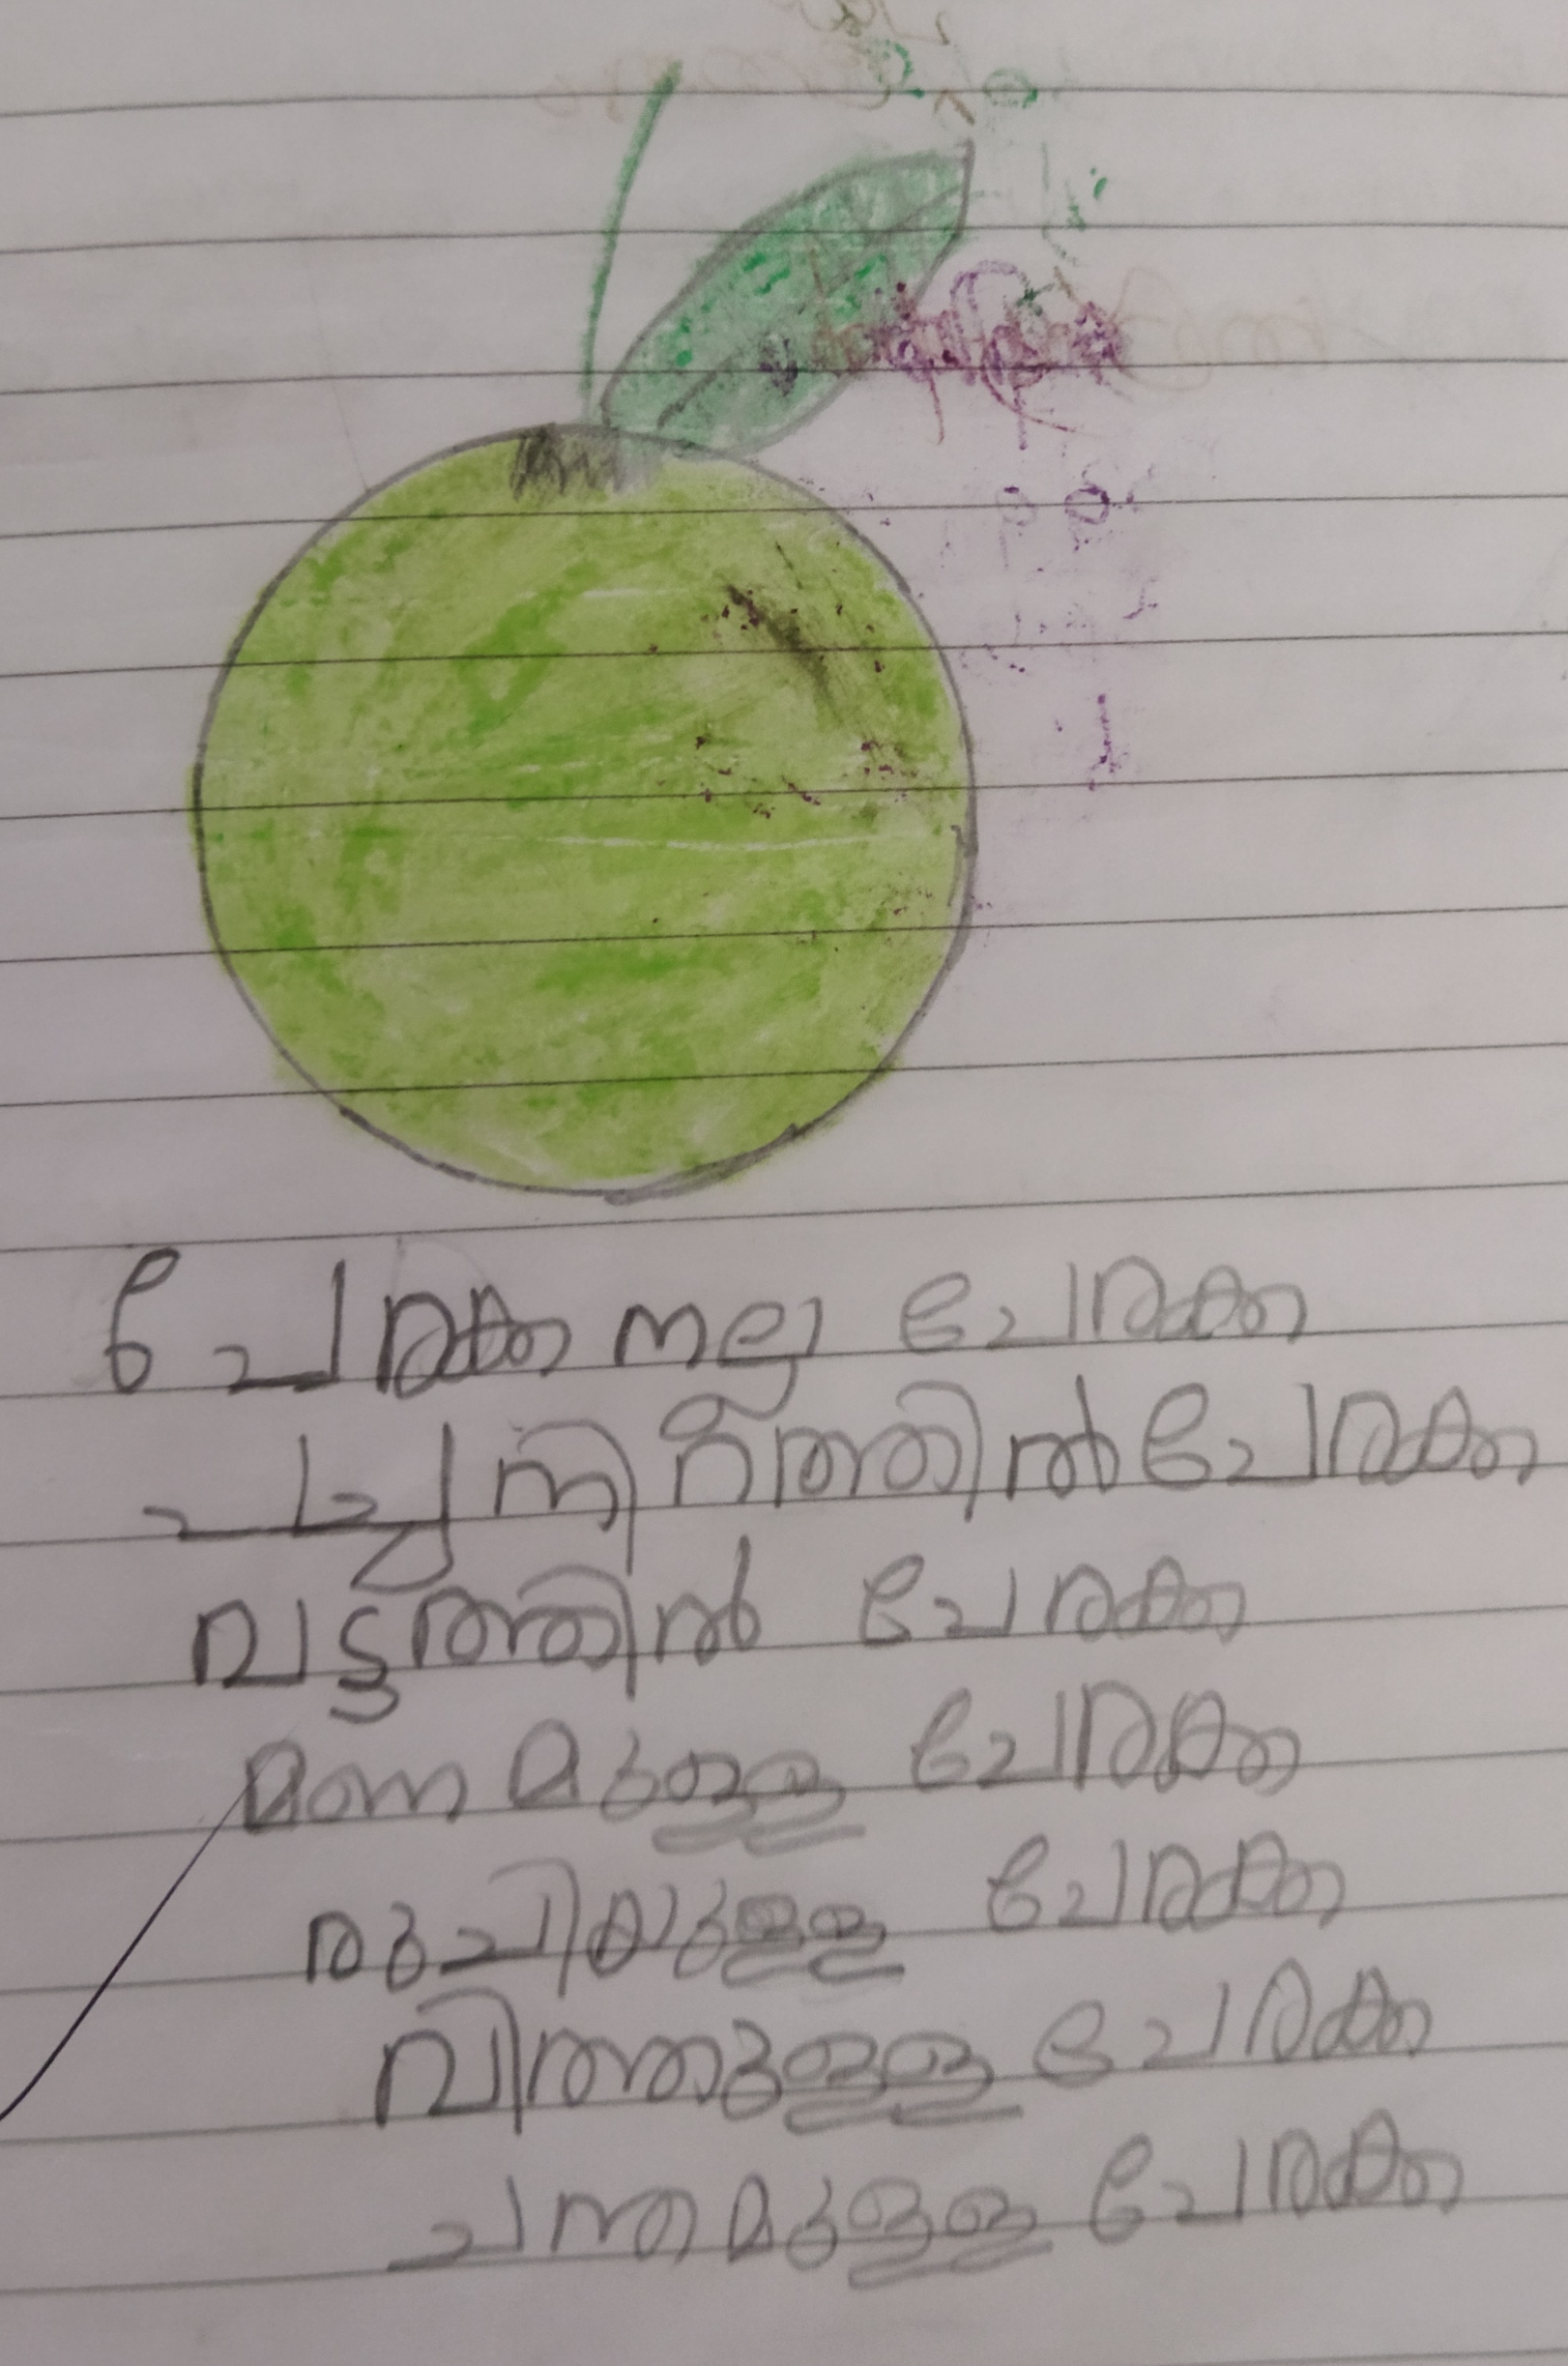 പേരക്ക നല്ല പേരക്ക
പച്ച നിറത്തിൽ പേരക്ക
വട്ടത്തിൽ പേരക്ക
മണമുള്ള പേരക്ക
രുചിയുള്ള പേരക്ക
വിത്തുള്ള പേരക്ക
ചന്തമുള്ള പേരക്ക